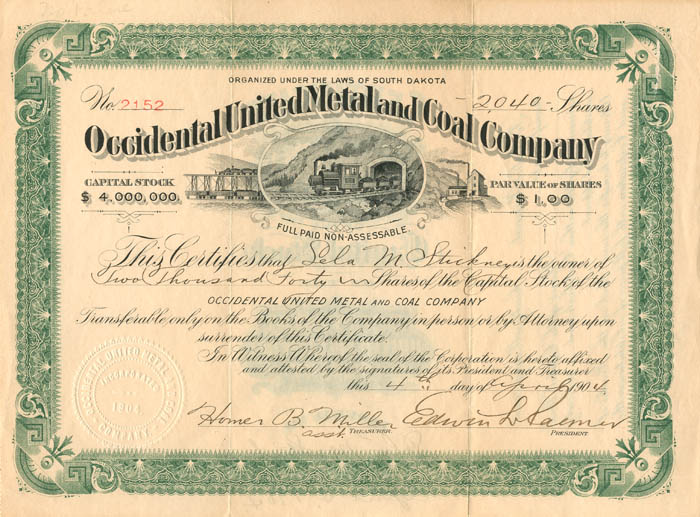 ORGANIZED UNDER THE LAWS OF SOUTH DAKOTA
No. 2152 - 2040 - Shares
Occidental United Metal and Coal Company
CAPITAL STOCK
$ 4,000,000
PAR VALUE OF SHARES
$ 1.00
FULL PAID NON-ASSESSABLE.
This Certifies that Lela M Stickney is the owner of
Two Thousand Forty Shares of the Capital Stock of the
OCCIDENTAL UNITED METAL AND COAL COMPANY
Transferable only on the Books of the Company in person or by Attorney upon
surrender of this Certificate.
In Witness Whereof the seal of the Corporation is hereto affixed
and attested by the signatures of its President and Treasurer
this 4th day of April 1904
OCCIDENTAL UNITED METAL AND COAL COMPANY
INCORPORATED
1904
Homer B. Miller Edwin
asst. TREASURER. PRESIDENT